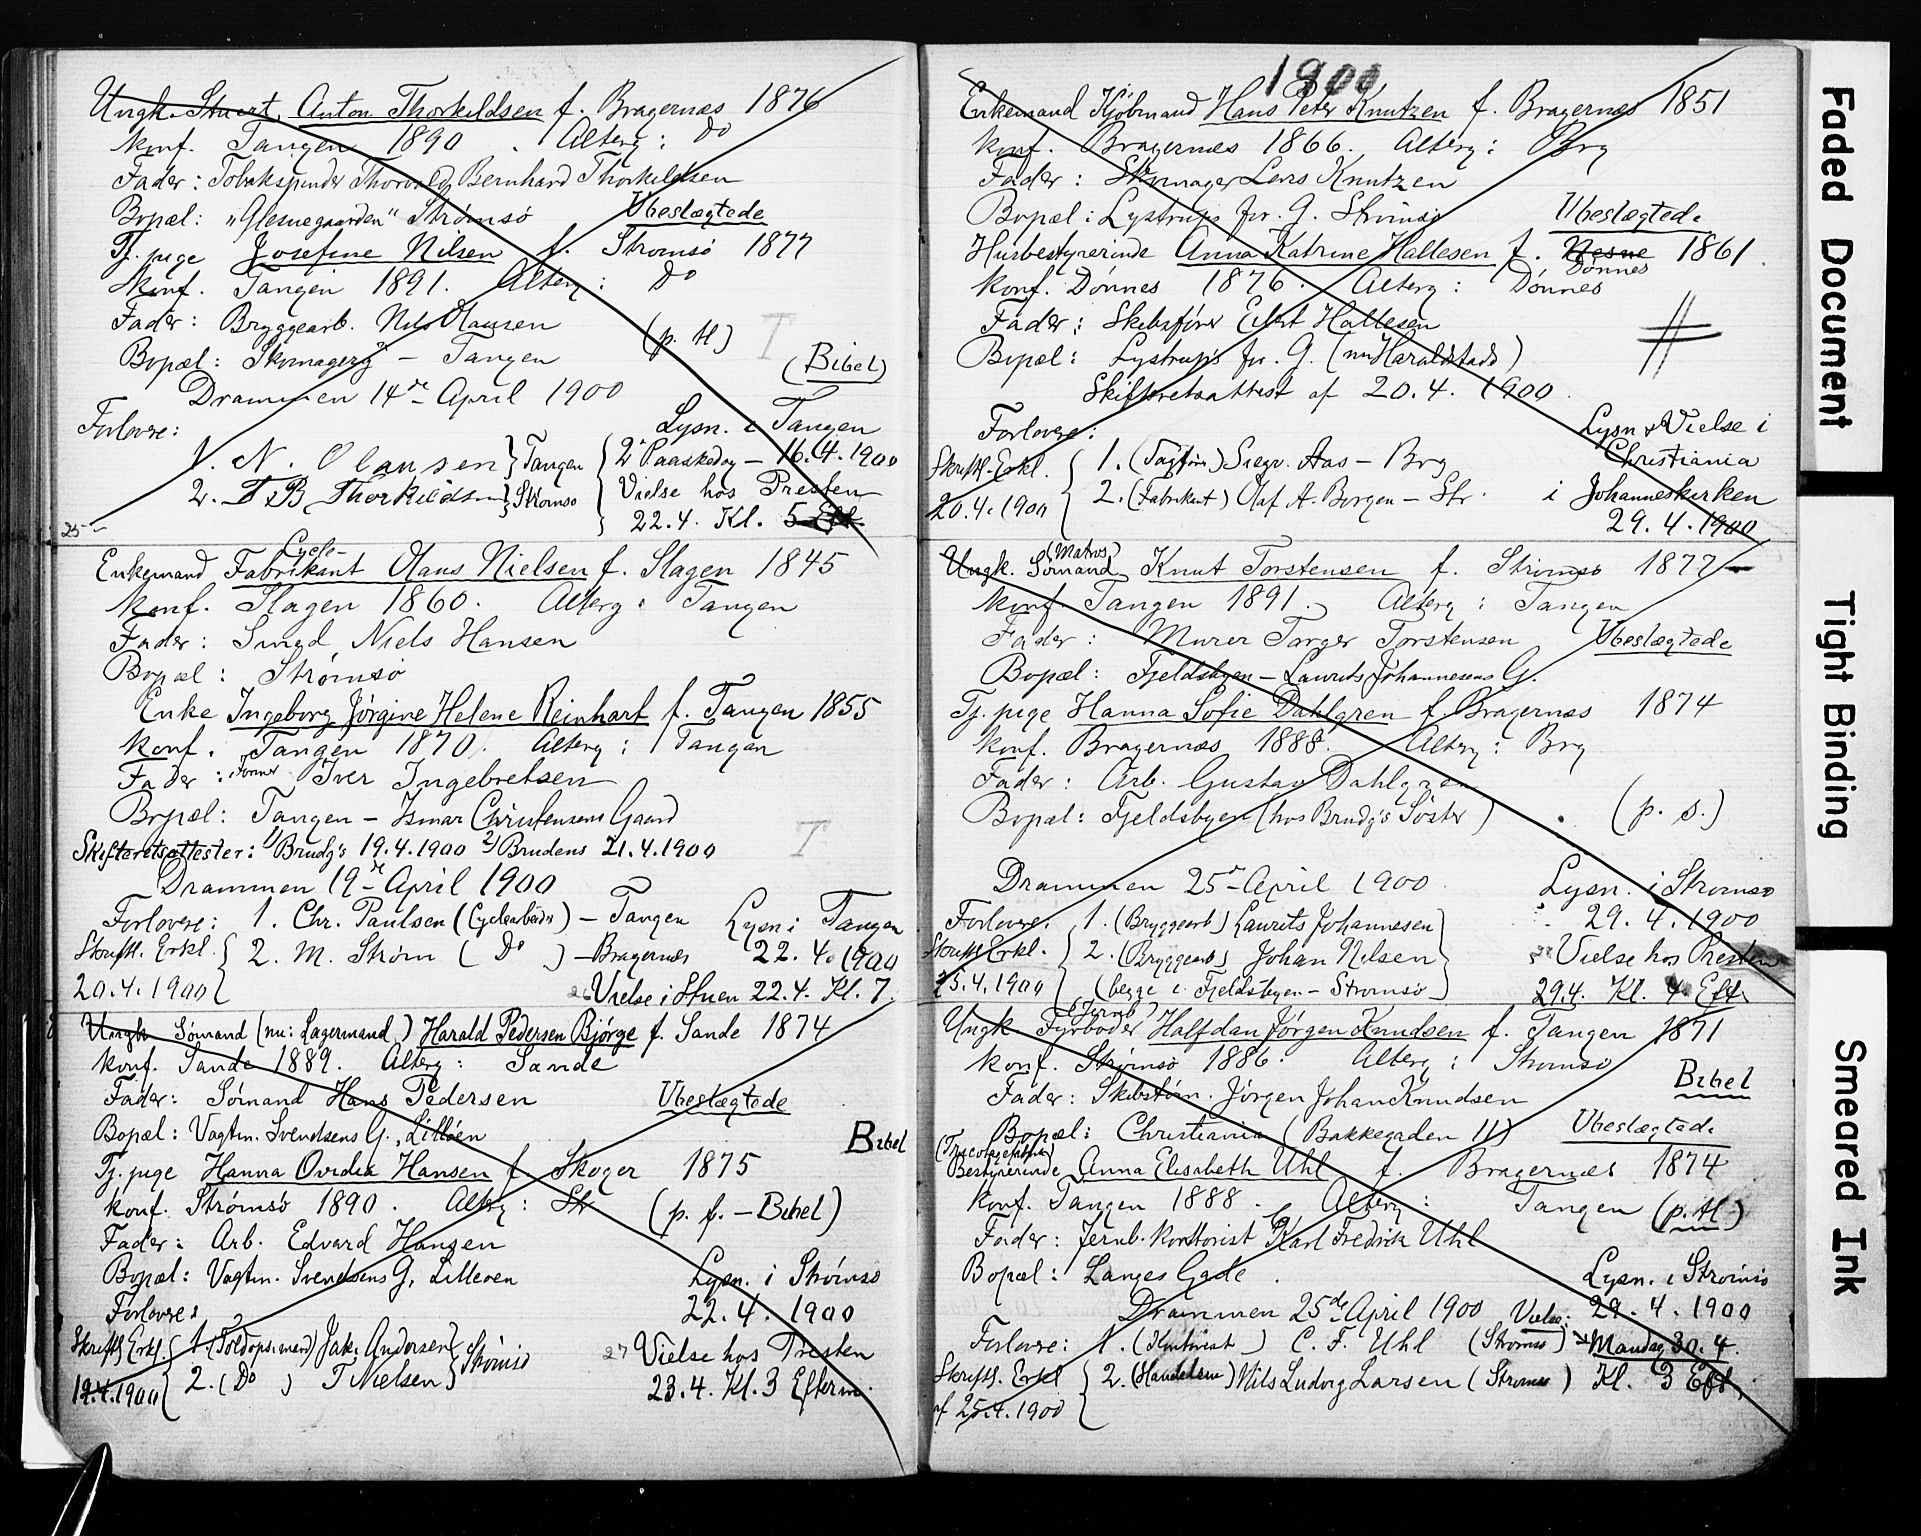 Ungk. Stuert. Anton Thorkildsen f. Bragernæs 1876
konf. Tangen 1890. Alterg: Do
Fader: Tobakspinder Thorvald Bernhard Thorkildsen
Bopæl: "Glesnegaarden" Strømsø Ubeslægtede
Tj. pige Josefine Nilsen f. Strømsø 1877
konf. Tangen 1891. Alterg: Do
Fader: Bryggearb. Nils Olausen (p. H)
Bopæl: Skomagerg - Tangen (Bibel)
Drammen 14de April 1900
Forlovere: Lysn. i Tangen
1. N. Olausen } Tangen { 2' Paaskedag - 16.4.1900
2. T B Thorkildsen } Strømsø Vielse hos Presten
22.4. Kl. 5 Eft.
25
Cycle-
Enkemand Fabrikant Olaus Nielsen f. Slagen 1845
konf. Slagen 1860. Alterg: Tangen
Fader: Smed, Niels Hansen
Bopæl: Strømsø
Enke Ingeborg Jörgine Helene Reinhart f. Tangen 1855
konf. Tangen 1870. Alterg: Tangen
Fader: Former Iver Ingebretsen
Bopæl: Tangen - Ismar Christensens Gaard
Skifteretsattester: 1) Brudg's 19.4.1900 2) Brudens 21.4.1900
T
Drammen 19de April 1900
Forlovere: 1. Chr. Paulsen (Cyclearbeider) - Tangen Lysn i Tangen
Skriftl. Erkl. { 2. M. Strøm ( Do ) - Bragernæs 22.4.1900
20.4.1900 26 Vielse i Stuen 22.4. Kl. 7.
Ungk. Sømand (nu: Lagermand) Harald Pedersen Bjørge f. Sande 1874
konf. Sande 1889. Alterg: Sande
Fader: Sømand Hans Pedersen Ubeslægtede
Bopæl: Vagtm. Svendsens G., Lilløen Bibel
Tj. pige Hanna Ovidia Hansen f. Skoger 1875
konf. Strømsö 1890. Alterg: Str (p. f. - Bibel)
Fader: Arb. Edvard Hansen
Bopæl: Vagtm. Svendsens G, Lilleøen Lysn. i Strømsø
Forlovere 22.4.1900
Skriftl. Erkl. { 1. (Toldops.mand) Jak. Andersen } Strømsø 27 Vielse hos Presten
19.4.1900 { 2. ( Do ) T Nielsen } 23.4. Kl. 3 Efterm.
1900
Enkemand Kjöbmand Hans Peter Knutzen f. Bragernæs 1851
konf. Bragernæs 1866. Alterg: Brg
Fader: Skomager Lars Knutzen
Bopæl: Lystrups for. G. Strömsø Ubeslægtede
Husbestyrerinde Anna Katrine Hallesen f. Nesne 1861
Dønnes
konf. Dønnes 1876. Alterg: Dønnes
Fader: Skibsfører Eilert Hallesen
Bopæl: Lystrups for. G. (nu Haraldstads)
Skifteretsattest af 20.4.1900
Forlovere: Lysn & Vielse i
Skriftl. Erkl. { 1. Sigv. Aas - Brg Christiania
20.4.1900 { 2. (Fabrikant) Olaf A. Borgen - Str. i Johanneskirken
29.4.1900
(Matros)
Ungk. Sømand Knut Torstensen f. Strømsø 1877
konf. Tangen 1891. Alterg: Tangen
Fader: Murer Torger Torstensen Ubeslægtede
Bopæl: Fjeldsbyen - Laurits Johannesens G.
Tj. pige Hanna Sofie Dahlgren f. Bragernæs 1874
konf. Bragernæs 1888. Alterg: Brg
Fader: Arb. Gustav Dahlgren
Bopæl: Fjeldsbyen (hos Brudg's Søster) (p. s.)
Drammen 25de April 1900 Lysn. i Strømsø
Forlovere. 1. (Bryggearb) Laurits Johannesen 29.4.1900
Skriftl. Erkl. { 2. (Bryggearb) Johan Nilsen } Vielse hos Presten
25.4.1900 (begge i Fjeldsbyen - Strømsø) 29.4. Kl. 4 Eft.
(Jernb)
Ungk Fyrbøder Halfdan Jörgen Knudsen f. Tangen 1871
konf. Strømsö 1886. Alterg: Strømsø
Bibel
Fader: Skibstøm. Jörgen Johan Knudsen
Bopæl: Christiania (Bakkegaden 11) Ubeslægtede
Bestyrerinde Anna Elisabeth Uhl f. Bragernæs 1874
konf. Tangen 1888. Alterg: Tangen (p. H)
Fader: Jernb. kontorist Karl Fredrik Uhl
Bopæl: Langes Gade. Lysn. i Strømsø
Drammen 25de April 1900 Vielse: 29.4.1900
Forlovere: 1. (Kontorist) C. F. Uhl (Strømsø) Mandag 30.4.
Skriftl. Erkl { 2. Nils Ludvig Larsen (Strømsø) Kl. 3 Eft,
af 25.4.1900
Faded Document
Tight Binding
Smeared Ink